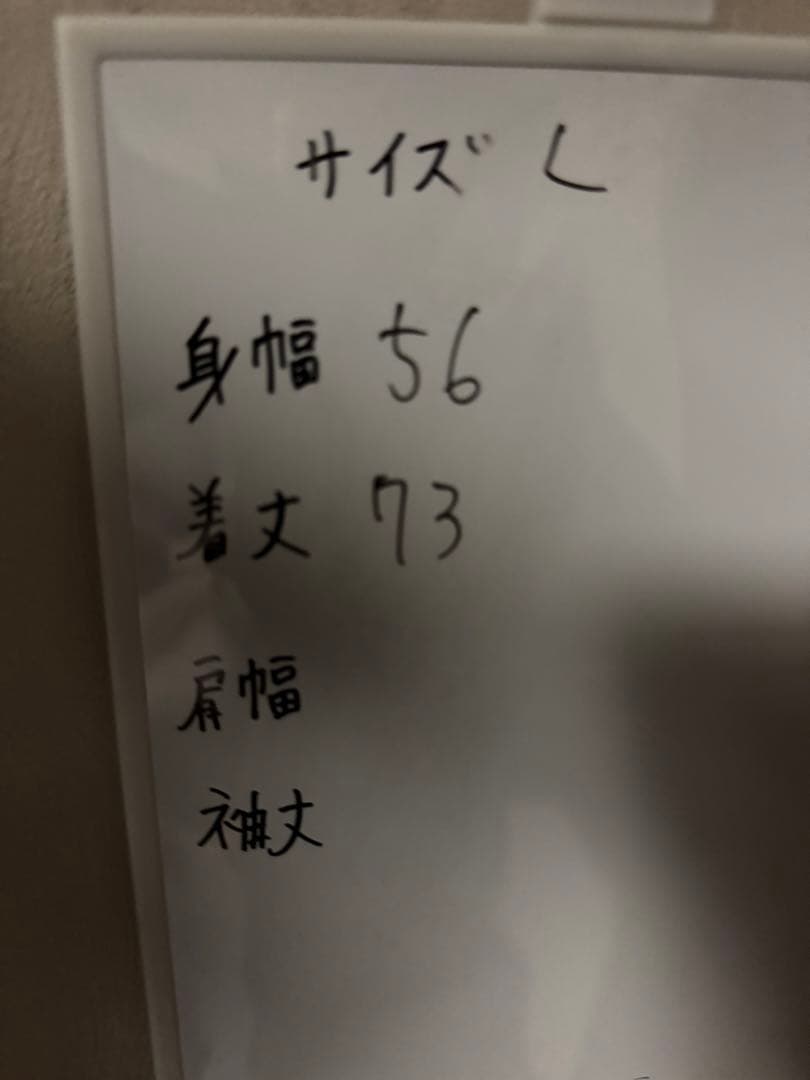 サイズ L
身幅 56
着丈 73
肩幅
袖丈